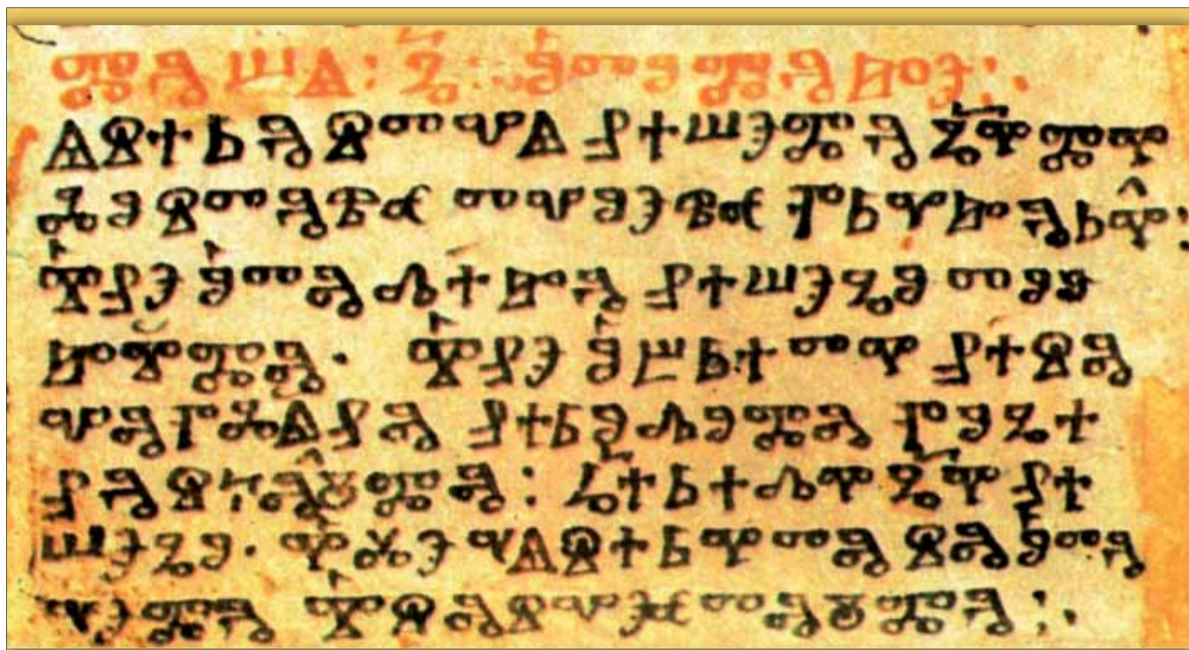 ⰿⱏⱎⱑ : ⰳ҃ : ⱁⱅⱁⰿⱏⰸⰵ :·
ⱑⱄⰰⱃⱐⱄⱅⰲⱑ ⱀⰰⱎⰵⰿⱐ ⰳ҃ⰹ ⰿⰹ
ⰾⱁⱄⱅⱐⱙ ⱅⰲⱁⰵⱙ ⱂⱃⰹⰸⱐⱃⰹ :
ⰻⱀⰵ ⱁⱅⱏⰴⰰⰸⱐ ⱀⰰⱎⰵⰳⱁ ⱅⱁⱆ
ⰸⰻⰿⱏ · ⰻⱀⰵ ⱁⰱⱃⰰⱅⰹ ⱀⰰⱄⱏ
ⰲⱏⱂⰾⱑⱀⱏ ⱀⰰⱃⱁⰴⱁⰿⱏ ⱂⱁⰳⰰ
ⱀⱐⱄⰽⱏⰺⰿⱏ : ⱈ҃ⰰ ⱃⰰⰴⰹ ⰳ҃ⰹ ⱀⰰ
ⱎⰵⰳⱁ · ⰹⰶⰵ ⱌⱑⱄⰰⱃⰹⱅⱏ ⱄⱏ ⱁⱅⱏ
ⱌⰵⰿⱐ ⰻ ⱄⱏ ⱄⰲⱔⱅⱏⰺⰿⱏ :·